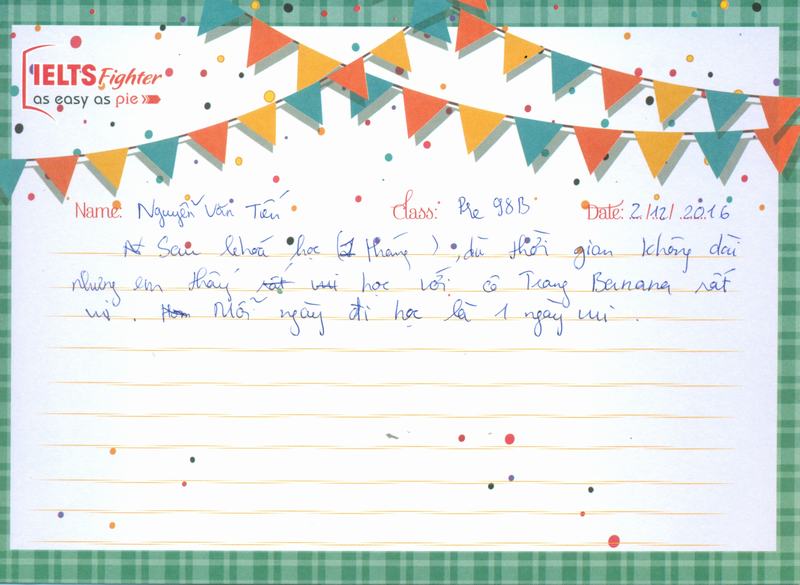 IELTS Fighter
as easy as pie
Name: Nguyễn Văn Tiến Class: Pre 98B Date: 2/12/2016
Sau khoá học (1 tháng), dù thời gian không dài
nhưng em thấy rất vui học với cô Trang Banana rất
vui. Mỗi ngày đi học là 1 ngày vui.